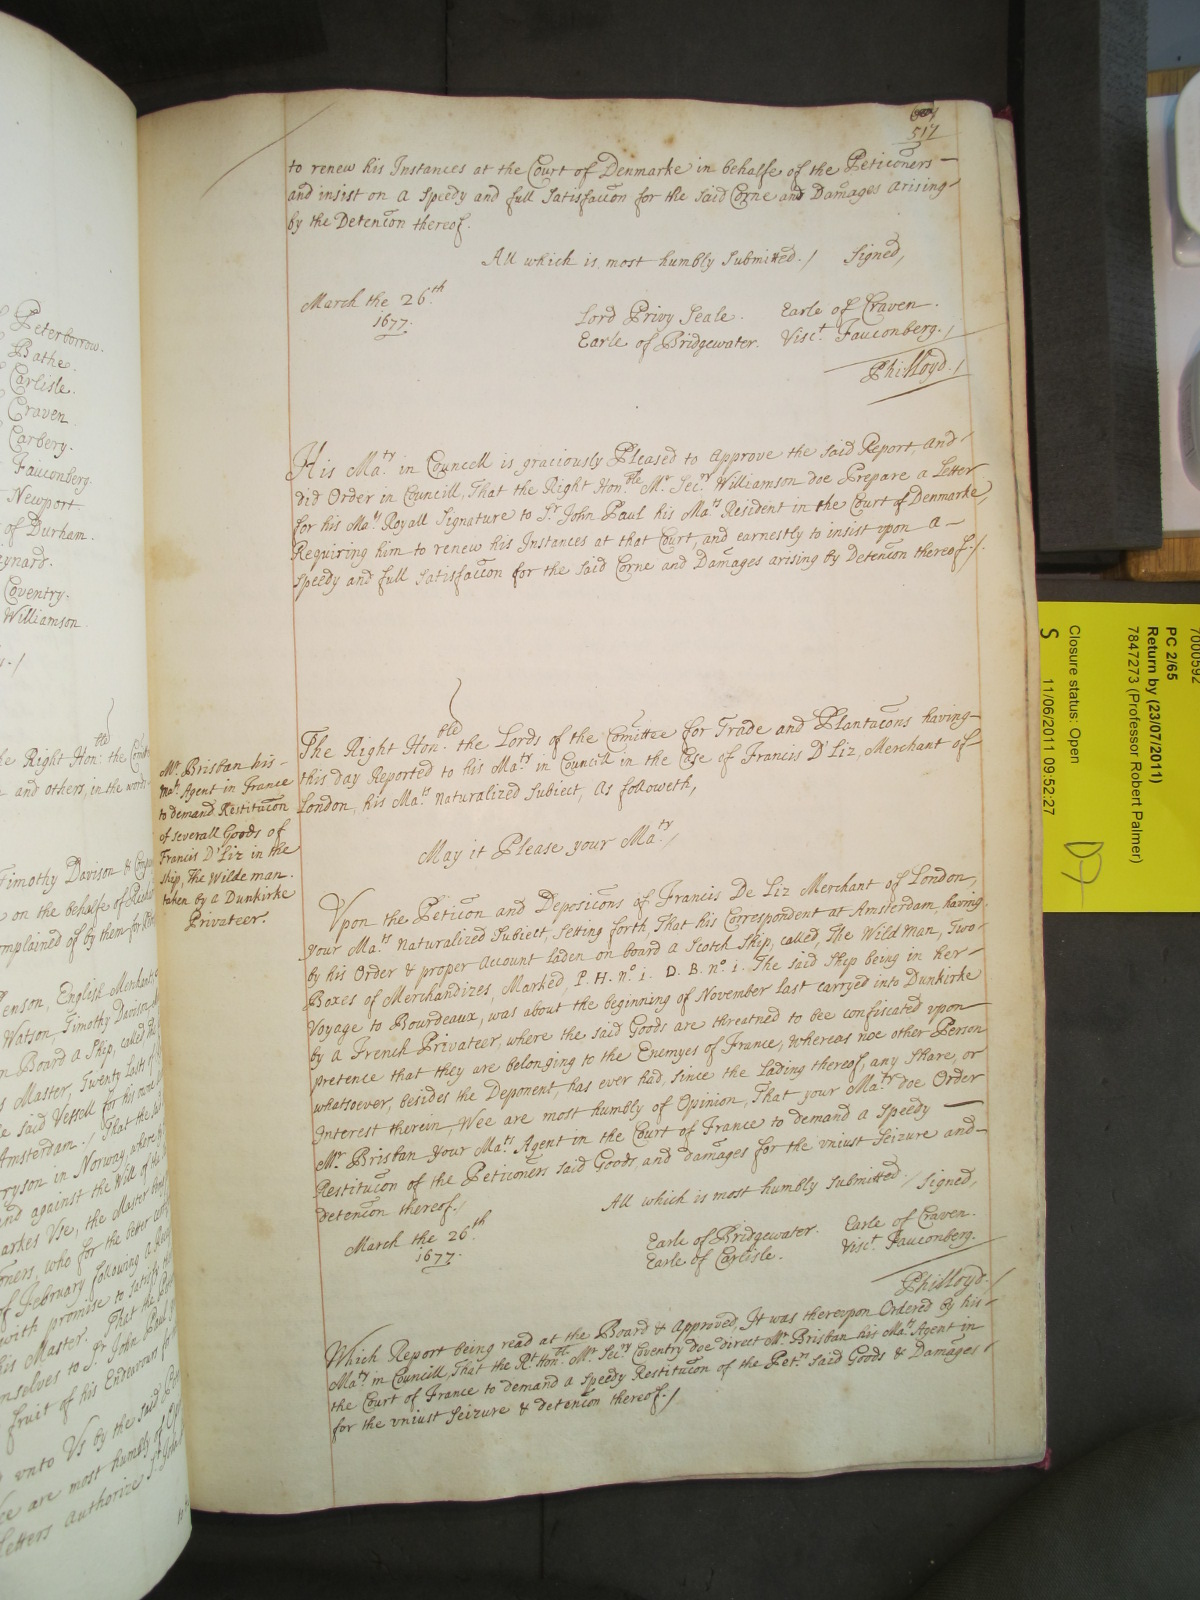 517
to renew his Instances at the Court of Denmarke in behalfe of the Peticoners
and insist on a speedy and full Satisfaccon for the said Corne and Damages arising
by the Detencon thereof.
All which is most humbly Submitted. / Signed,
March the 26th
1677.
Lord Privy Seale. Earle of Craven.
Earle of Bridgewater. Visct Fauconberg. /
Phi: Lloyd. /
His Maty in Councell is graciously Pleased to Approve the said Report, and
did Order in Councill, That the Right Honble Mr Secry Williamson doe Prepare a Letter
for his Mats Royall Signature to Sr John Paul his Mats Resident in the Court of Denmarke,
Requiring him to renew his Instances at that Court, and earnestly to insist upon a
speedy and full Satisfaccon for the said Corne and Damages arising by Detencon thereof. /.
The Right Honble the Lords of the Comittee for Trade and Plantacons having
this day Reported to his Maty in Councill in the Case of Francis D'Liz, Merchant of
London, his Mats naturalized Subiect, As followeth,
Mr Brisban his
Mats Agent in France
to demand Restitucon
of severall Goods of
Francis D'Liz in the
ship, The Wildeman.
taken by a Dunkirke
Privateer.
May it Please your Maty /
Vpon the Peticon and Deposicons of Francis De Liz Merchant of London,
your Mats naturalized Subiect, Setting forth, That his Correspondent at Amsterdam, having
by his Order & proper Account laden on board a Scotch Ship, called, The Wild Man, Two
Boxes of Merchandizes, Marked, P. H. no. 1. D. B. no. 1. The said Ship being in her
Voyage to Bourdeaux, was about the beginning of November last carryed into Dunkirke
by a French Privateer, where the said Goods are threatned to bee confiscated vpon
pretence that they are belonging to the Enemyes of France, Whereas noe other Person
whatsoever, besides the Deponent, has ever had, since the lading thereof, any Share, or
Interest therein, Wee are most humbly of Opinion, That your Maty doe Order
Mr Brisban your Mats Agent in the Court of France to demand a speedy
Restitucon of the Peticoners said Goods, and damages for the vniust Seizure and
detencon thereof. /
All which is most humbly submitted / Signed,
March the 26th
1677.
Earle of Bridgewater. Earle of Craven.
Earle of Carlisle. Visct Fauconberg.
Phi: Lloyd. /
Which Report being read at the Board & Approved, It was thereupon Ordered by his
Maty in Councill, That the Rt Honble Mr Secry Coventry doe direct Mr Brisban his Mats Agent in
the Court of France to demand a speedy Restitucon of the Petrs said Goods & Damages
for the vniust Seizure & detencon thereof. /
Peterborrow.
Bathe.
Carlisle.
Craven
Carbery.
Fauconberg.
Newport
of Durham.
Coventry.
Williamson
Right Honble the
and others, in the words
Timothy Davison &
on the behalfe of
complained of by them for
English Merchants
Watson, Timothy Davison
Board a Ship, called
Master, Twenty Lasts
said Vessell for his
Amsterdam. / That the
in Norway, where
and against the Will of the
Vse, the Master
who for the better
of February following
with promise to Satisfy
his Master. That the
to Sr John Paul
fruit of his Endeavours
vnto Vs by the said
are most humbly of
Letters Authorize Sr John
7000592
PC 2/65
Return by (23/07/2011)
7847273 (Professor Robert Palmer)
Closure status: Open
S 11/06/2011 09:52:27